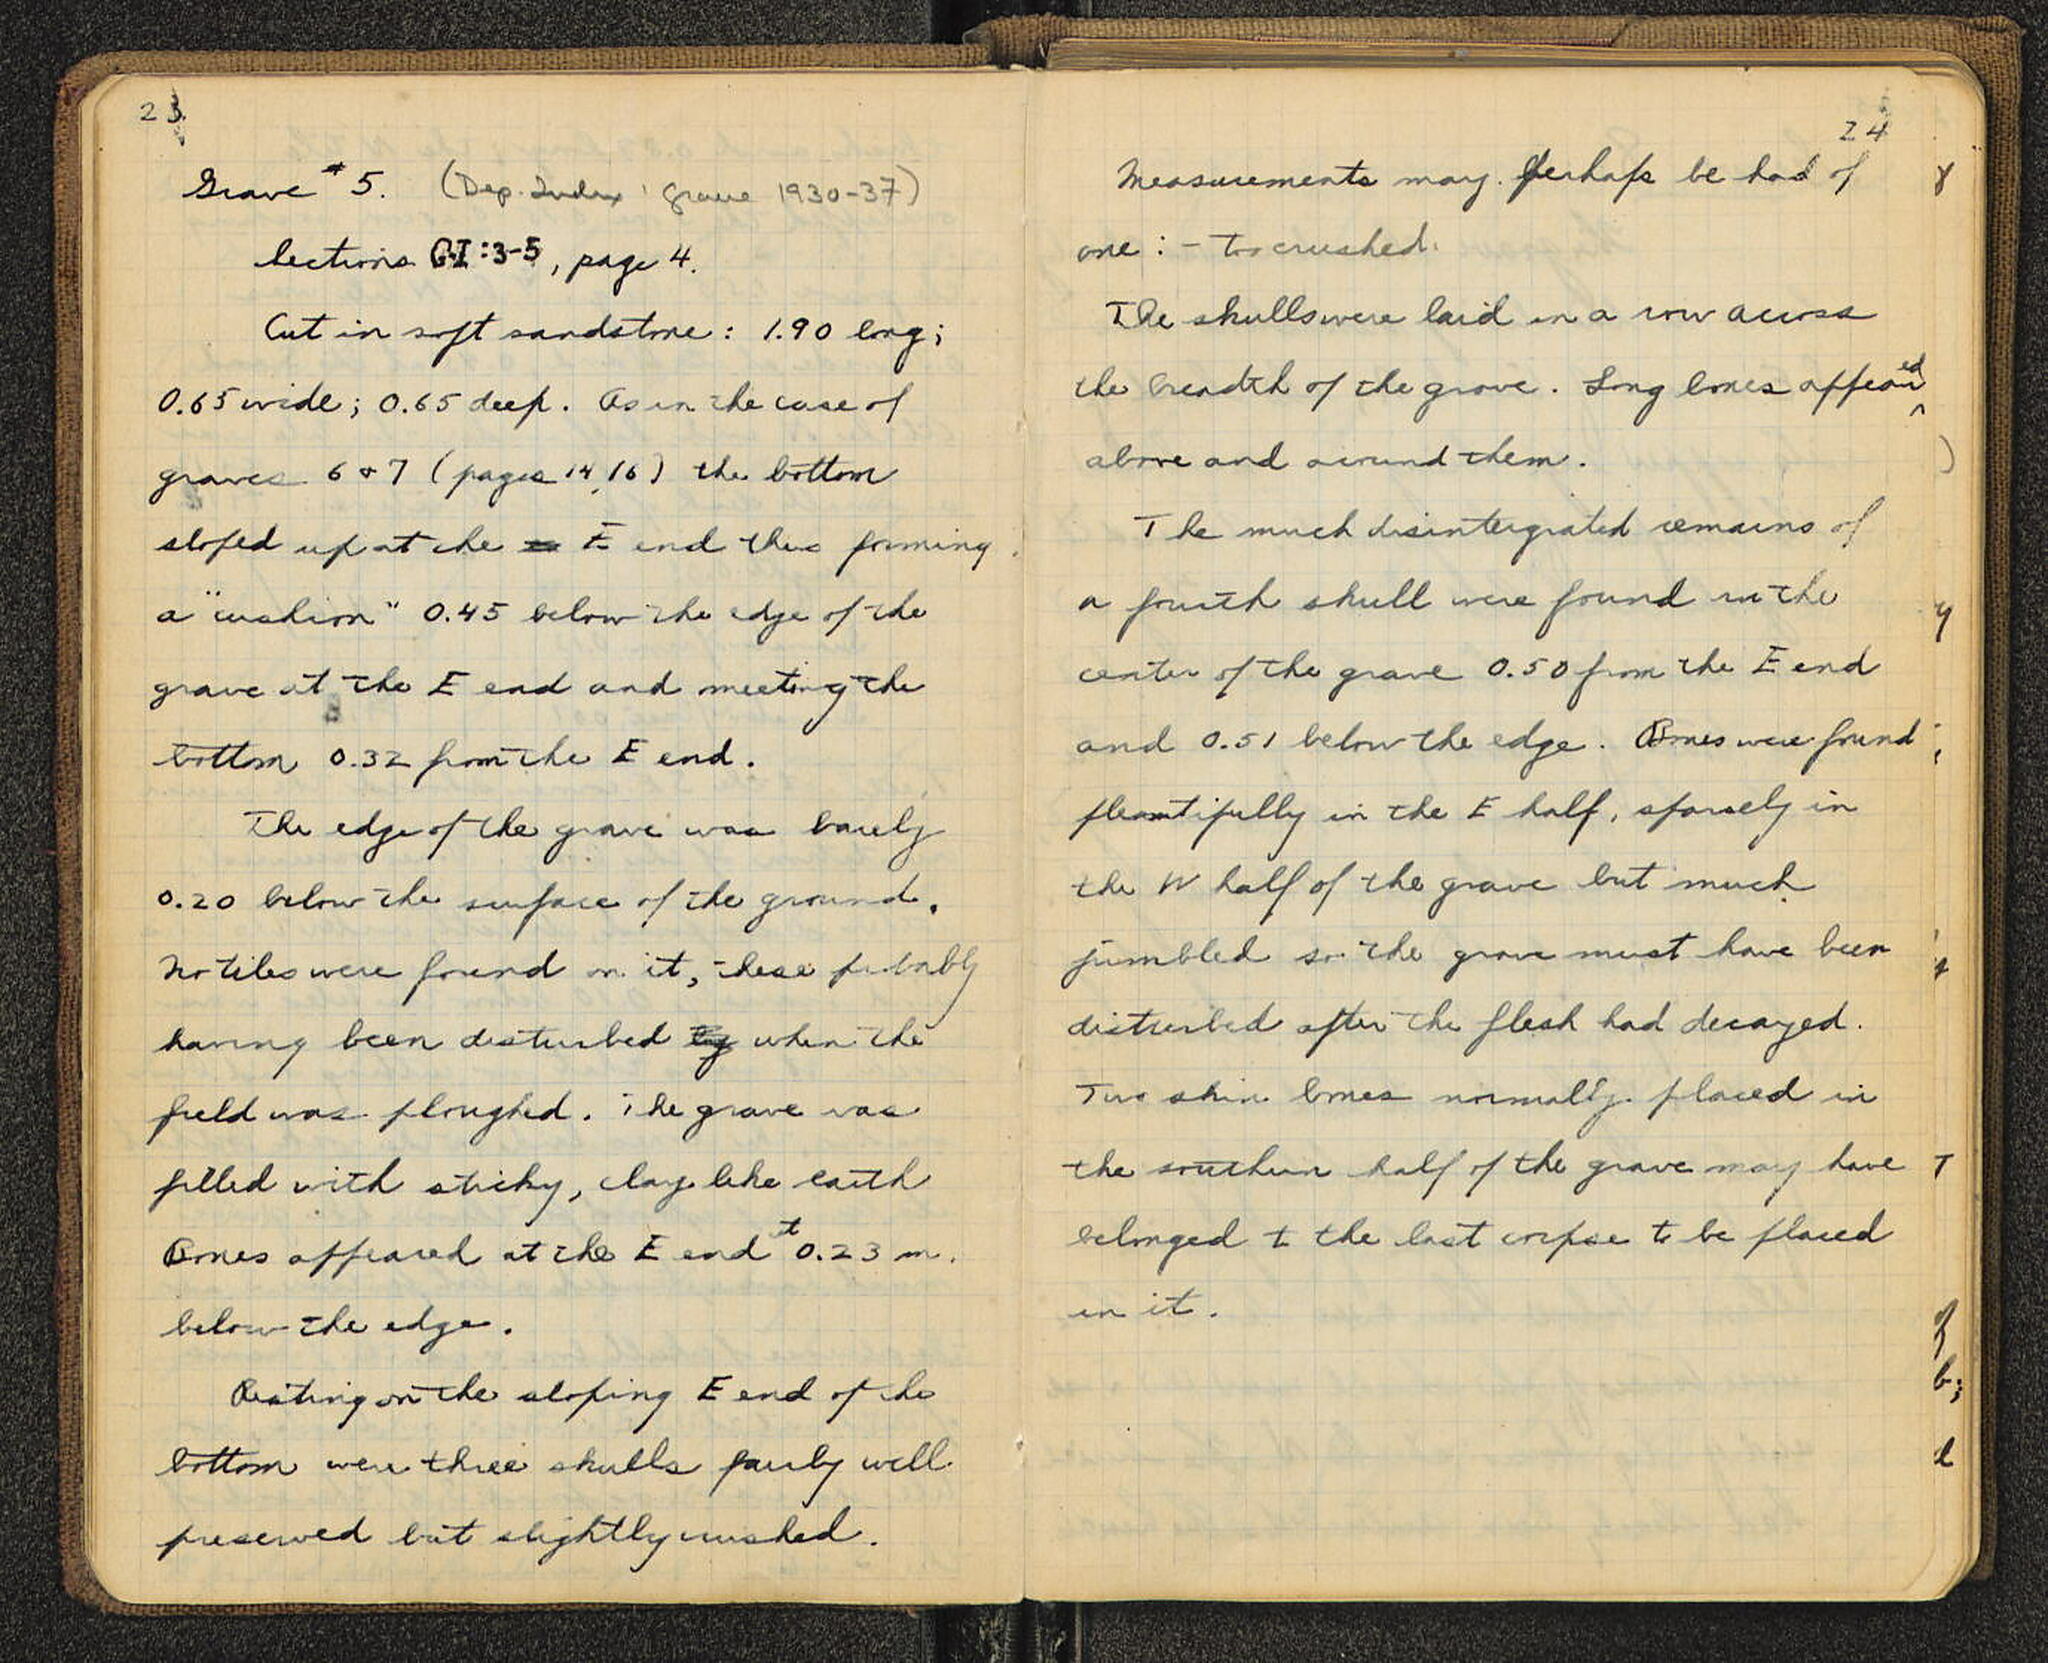 23
Grave #5. (Dep. Index: grave 1930-37)
Sections GI:3-5, page 4.
Cut in soft sandstone: 1.90 long;
0.65 wide; 0.65 deep. As in the case of
graves 6 & 7 (pages 14, 16) the bottom
sloped up at the E end thus forming
a "cushion" 0.45 below the edge of the
grave at the E end and meeting the
bottom 0.32 from the E end.
The edge of the grave was barely
0.20 below the surface of the ground.
No tiles were found on it, these probably
having been disturbed by when the
field was ploughed. The grave was
filled with sticky, clay like earth
Bones appeared at the E end at 0.23 m.
below the edge.
Resting on the sloping E end of the
bottom were three skulls fairly well
preserved but slightly crushed.
24
Measurements may perhaps be had of
one: - too crushed.
The skulls were laid in a row across
the breadth of the grave. Long bones appeared
above and around them.
The much disintergrated remains of
a fourth skull were found in the
center of the grave 0.50 from the E end
and 0.51 below the edge. Bones were found
pleantifully in the E half, sparsely in
the W half of the grave but much
jumbled so the grave must have been
disturbed after the flesh had decayed.
Two shin bones normally placed in
the southern half of the grave may have
belonged to the last corpse to be placed
in it.